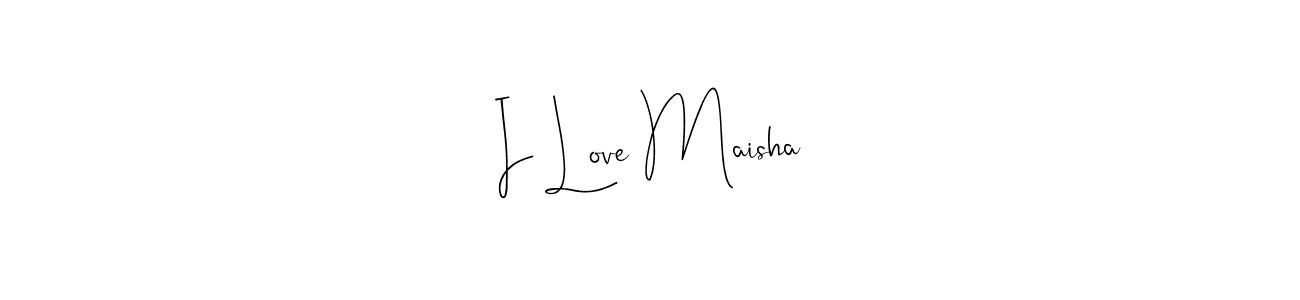 I Love Maisha